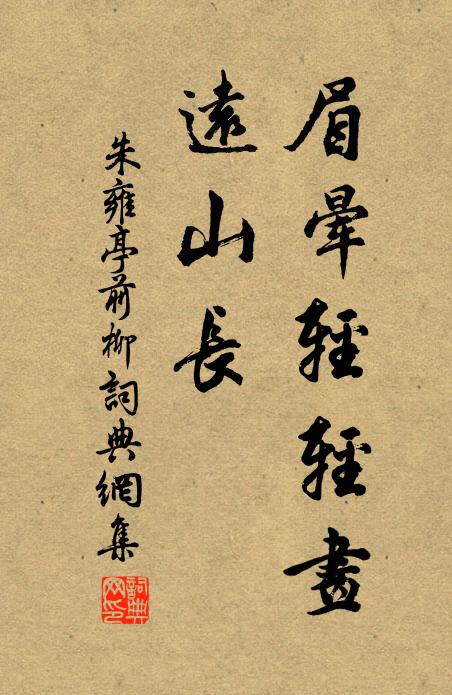 眉暈輕輕畫
遠山長
朱雍亭前柳詞典網集
詞典
网印